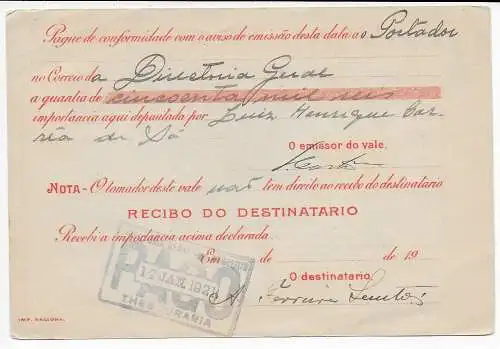 Pague de conformidade com o aviso de emissão desta data a o Portador
no Correio da Directoria Geral
a quantia de cincoenta mil reis
importancia aqui depositada por Luiz Henrique Cor-
rêa de Sá
O emissor do vale.
NOTA - O tomador deste vale não tem direito ao recibo do destinatario
RECIBO DO DESTINATARIO
Recebi a importancia acima declarada.
Em de de 19
PAGO
17 JAN. 1921
THESOURARIA
O destinatario.
A. Ferreira Santos
IMP. NACIONAL.